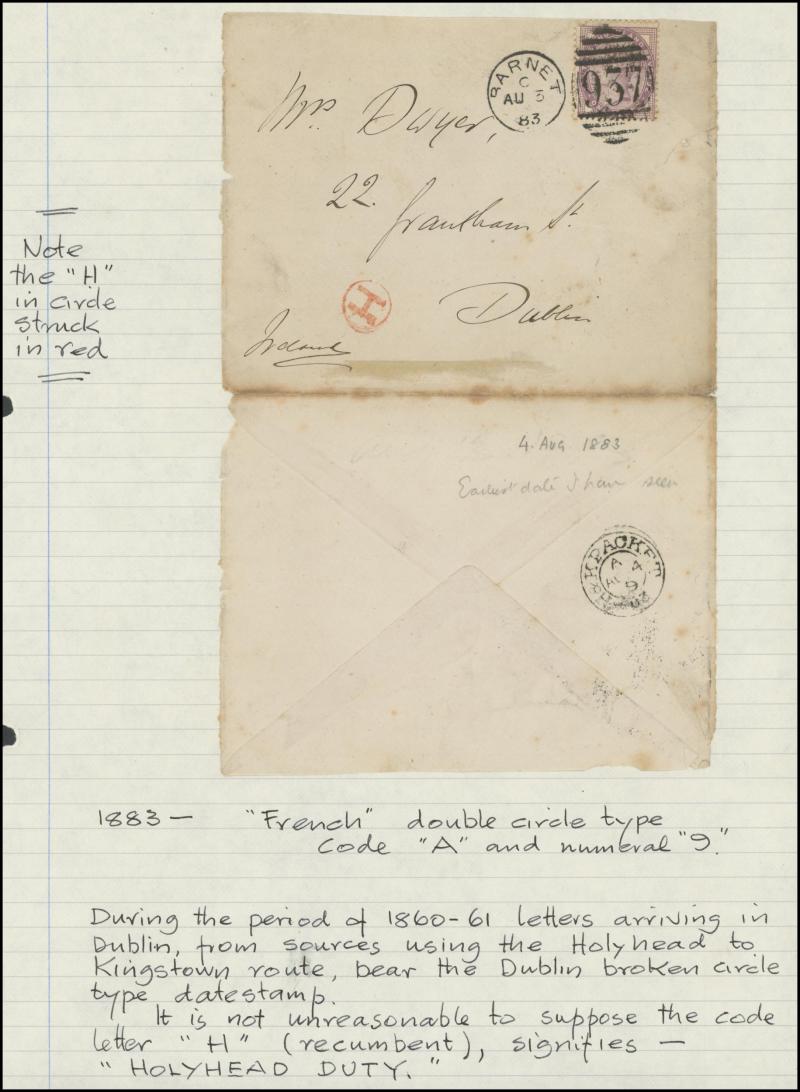 BARNET
C
AU 3
83
937
Mrs Dwyer,
22.
Grantham St.
Dublin
Ireland
H
Note
the "H"
in circle
struck
in red
4. Aug 1883
Earliest date I have seen
H & K PACKET
A
AU 4
9
83
1883 — "French" double circle type
Code "A" and numeral "9."
During the period of 1860-61 letters arriving in
Dublin, from sources using the Holyhead to
Kingstown route, bear the Dublin broken circle
type datestamp.
It is not unreasonable to suppose the code
letter "H" (recumbent), signifies —
"HOLYHEAD DUTY."